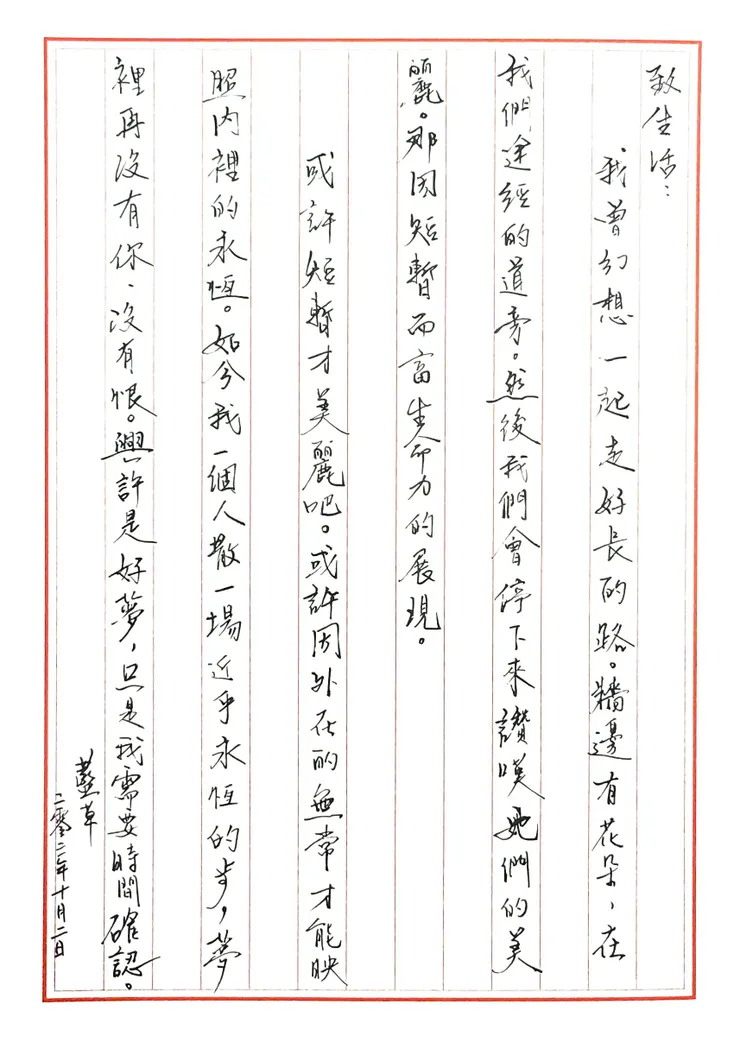 致生活：
我曾幻想一起走好長的路。牆邊有花朵，在
我們途經的道旁。然後我們會停下來讚嘆她們的美
麗。那因短暫而富生命力的展現。
或許短暫才美麗吧。或許因外在的無常才能映
照内裡的永恆。如今我一個人散一場近乎永恆的步，夢
裡再沒有你、沒有恨。興許是好夢，只是我需要時間確認。
藍草
二零二二年十月二日